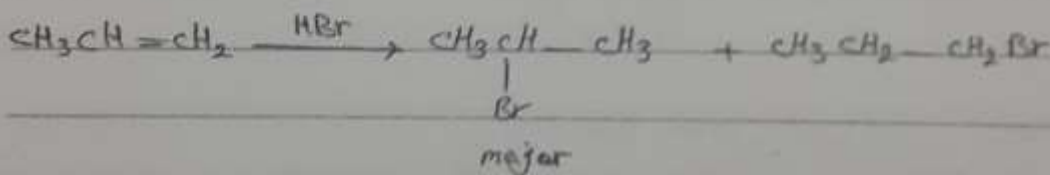 CH₃CH=CH₂ —HBr→ CH₃CH—CH₃ + CH₃CH₂—CH₂Br
|
Br
major